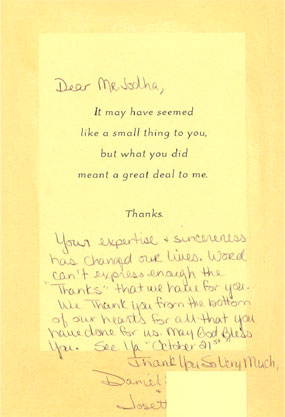 Dear Mr Jodha,
It may have seemed
like a small thing to you,
but what you did
meant a great deal to me.
Thanks.
Your expertise + sincereness
has changed our lives. Word
can't express enough the
"Thanks" that we have for you.
We Thank you from the bottom
of our hearts for all that you
have done for us. May God Bless
You. See Ya "October 21st"
Thank You So Very Much,
Daniel
+
Josett